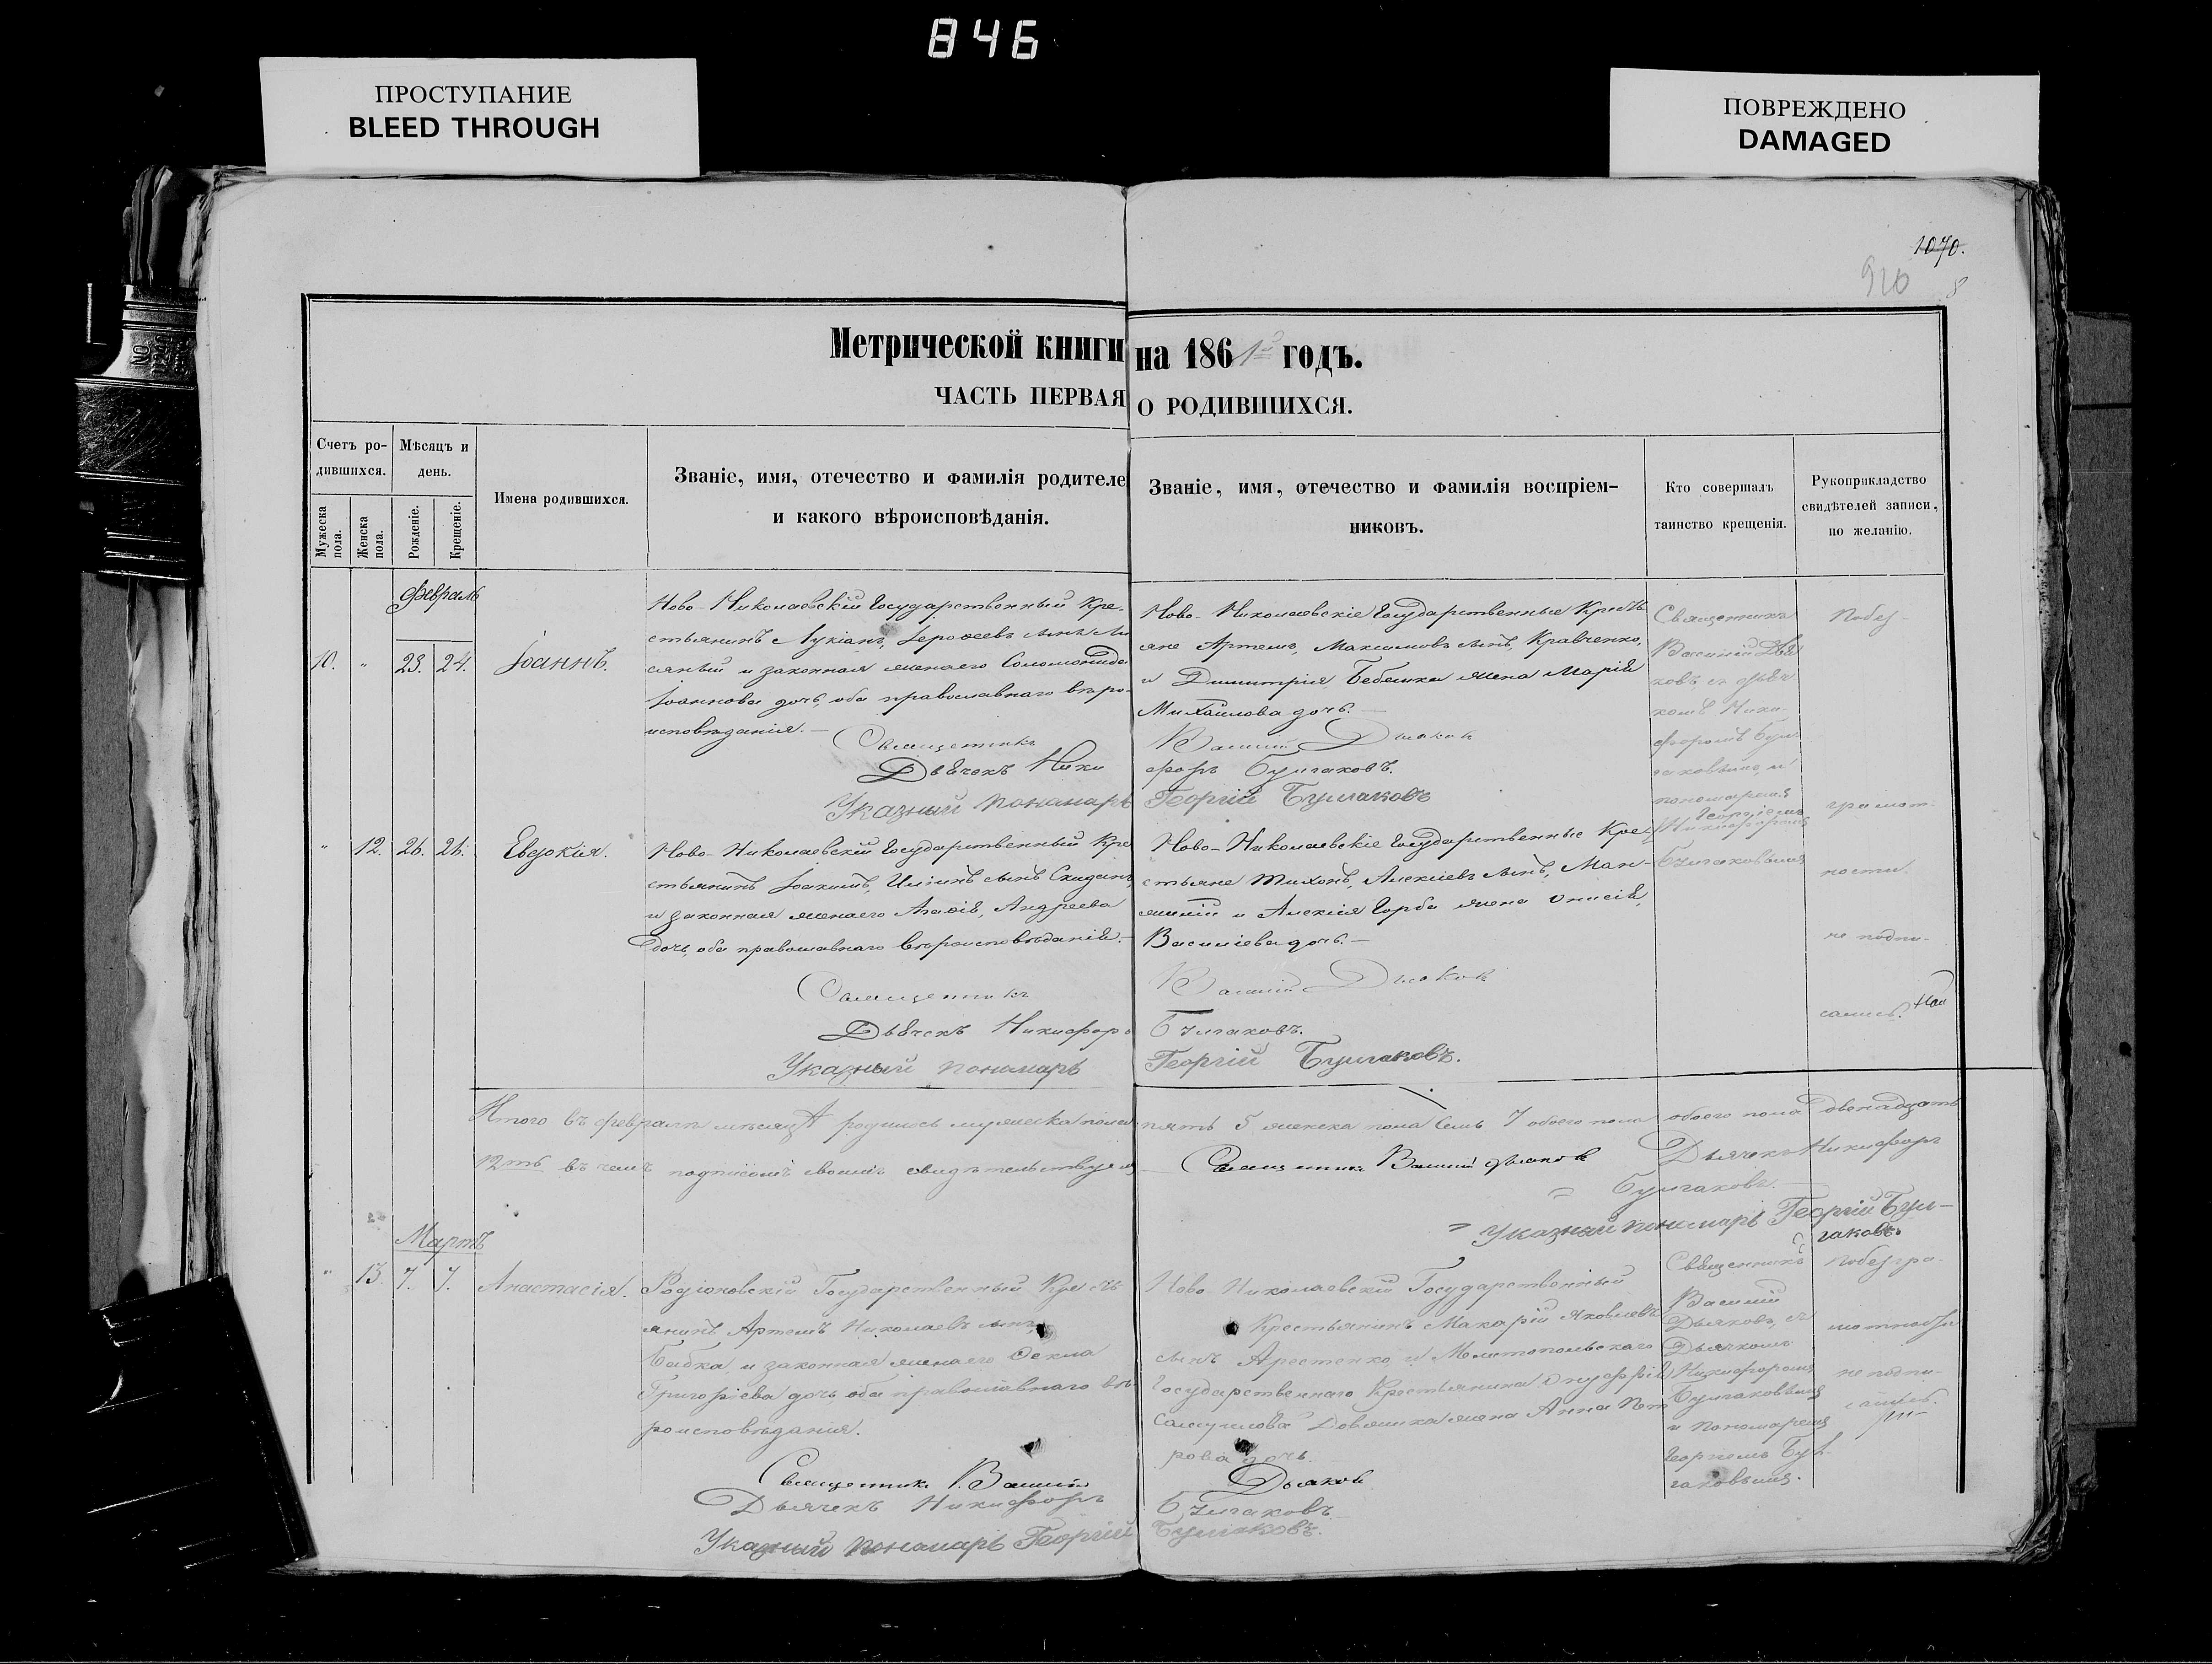 846
ПРОСТУПАНИЕ
BLEED THROUGH
ПОВРЕЖДЕНО
DAMAGED
1070.
8
Метрической книги на 1861й годъ.
ЧАСТЬ ПЕРВАЯ О РОДИВШИХСЯ.
Счетъ ро-
дившихся.
Мужеска
пола.
Женска
пола.
Мѣсяцъ и
день.
Рожденіе.
Крещеніе.
Имена родившихся.
Званіе, имя, отечество и фамилія родителе
и какого вѣроисповѣданія.
Званіе, имя, отечество и фамилія воспріем-
никовъ.
Кто совершалъ
таинство крещенія.
Рукоприкладство
свидѣтелей записи,
по желанію.
Февраль
10. " 23. 24. Іоаннъ.
Ново-Николаевскій Государственный Кре-
стьянинъ Лукіанъ, Іерофеевъ сынъ
и законная жена его Соломонида
Іоаннова дочь, оба православнаго вѣро-
исповѣданія.—
Ново-Николаевскіе Государственные Кресть
яне Артемъ, Максимовъ сынъ, Кравченко,
и Димитрія Бебешка жена Марія
Михайлова дочь.—
Священникъ Василій Дьяковъ
Дьячекъ Ники форъ Булгаковъ.
Указный пономарь Георгій Булгаковъ
Священникъ
Василій Дья
ковъ съ дьяч
комъ Ники-
форомъ Бул-
гаковымъ, и
пономаремъ
Георгіемъ
Булгаковымъ
По без-
грамот-
ности
не подпи-
сались.
" 12. 26. 26. Евдокія.
Ново-Николаевскій Государственный Кре
стьянинъ Іоакимъ, Иліинъ сынъ Скиданъ,
и законная жена его Агафія, Андреева
дочь, оба православнаго вѣроисповѣданія.—
Ново-Николаевскіе Государственные Кре-
стьяне Тихонъ, Алексіевъ сынъ, Ман-
и Алексія Горба жена Онисія,
Василіева дочь.—
Священникъ Василій Дьяковъ
Дьячекъ Никифоръ Булгаковъ.
Указный пономарь Георгій Булгаковъ.
Итого въ февралѣ мѣсяцѣ родилось мужеска пола пять 5 женска пола семь 7 обоего пола обоего пола двенадцать
12ть въ чемъ подписомъ своимъ свидѣтельствуемъ Священникъ Василій Дьяковъ Дьячекъ Никифоръ
Булгаковъ.—
Указный пономарь Георгій Бул-
гаковъ.
Мартъ
" 13. 7. 7. Анастасія.
Родіоновскій Государственный Кресть
янинъ Артемъ Николаевъ сынъ
Бабка и законная жена его Фекла
Григоріева дочь оба православнаго вѣ-
роисповѣданія.
Ново Николаевскій Государственный
Крестьянинъ Макарій Яковлевъ
сынъ Арестенко, и Мелитопольскаго
Государственнаго Крестьянина Онуфрія
Самуилова Довженка жена Анна Пет
рова дочь.
Священникъ Василій Дьяковъ
Дьячекъ Никифоръ Булгаковъ.
Указный пономарь Георгій Булгаковъ.
Священникъ
Василій
Дьяковъ, съ
Дьячкомъ
Никифоромъ
Булгаковымъ
и пономаремъ
Георгіемъ Бул-
гаковымъ.
По безгра-
мотности
не подпи-
сались.